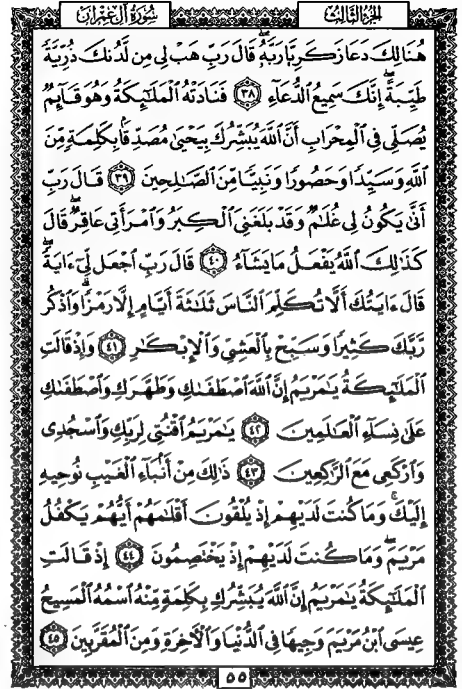 سُورَةُ آلِ عِمْرَانَ
الجُزءُ الثَّالِثُ
هُنَالِكَ دَعَا زَكَرِيَّا رَبَّهُۥۖ قَالَ رَبِّ هَبْ لِى مِن لَّدُنكَ ذُرِّيَّةً
طَيِّبَةًۖ إِنَّكَ سَمِيعُ ٱلدُّعَآءِ ٣٨ فَنَادَتْهُ ٱلْمَلَٰٓئِكَةُ وَهُوَ قَآئِمٌ
يُصَلِّى فِى ٱلْمِحْرَابِ أَنَّ ٱللَّهَ يُبَشِّرُكَ بِيَحْيَىٰ مُصَدِّقًۢا بِكَلِمَةٍ مِّنَ
ٱللَّهِ وَسَيِّدًا وَحَصُورًا وَنَبِيًّا مِّنَ ٱلصَّٰلِحِينَ ٣٩ قَالَ رَبِّ
أَنَّىٰ يَكُونُ لِى غُلَٰمٌ وَقَدْ بَلَغَنِىَ ٱلْكِبَرُ وَٱمْرَأَتِى عَاقِرٌۖ قَالَ
كَذَٰلِكَ ٱللَّهُ يَفْعَلُ مَا يَشَآءُ ٤٠ قَالَ رَبِّ ٱجْعَل لِّىٓ ءَايَةًۖ
قَالَ ءَايَتُكَ أَلَّا تُكَلِّمَ ٱلنَّاسَ ثَلَٰثَةَ أَيَّامٍ إِلَّا رَمْزًاۗ وَٱذْكُر
رَّبَّكَ كَثِيرًا وَسَبِّحْ بِٱلْعَشِىِّ وَٱلْإِبْكَٰرِ ٤١ وَإِذْ قَالَتِ
ٱلْمَلَٰٓئِكَةُ يَٰمَرْيَمُ إِنَّ ٱللَّهَ ٱصْطَفَىٰكِ وَطَهَّرَكِ وَٱصْطَفَىٰكِ
عَلَىٰ نِسَآءِ ٱلْعَٰلَمِينَ ٤٢ يَٰمَرْيَمُ ٱقْنُتِى لِرَبِّكِ وَٱسْجُدِى
وَٱرْكَعِى مَعَ ٱلرَّٰكِعِينَ ٤٣ ذَٰلِكَ مِنْ أَنۢبَآءِ ٱلْغَيْبِ نُوحِيهِ
إِلَيْكَۚ وَمَا كُنتَ لَدَيْهِمْ إِذْ يُلْقُونَ أَقْلَٰمَهُمْ أَيُّهُمْ يَكْفُلُ
مَرْيَمَ وَمَا كُنتَ لَدَيْهِمْ إِذْ يَخْتَصِمُونَ ٤٤ إِذْ قَالَتِ
ٱلْمَلَٰٓئِكَةُ يَٰمَرْيَمُ إِنَّ ٱللَّهَ يُبَشِّرُكِ بِكَلِمَةٍ مِّنْهُ ٱسْمُهُ ٱلْمَسِيحُ
عِيسَى ٱبْنُ مَرْيَمَ وَجِيهًا فِى ٱلدُّنْيَا وَٱلْءَاخِرَةِ وَمِنَ ٱلْمُقَرَّبِينَ ٤٥
٥٥